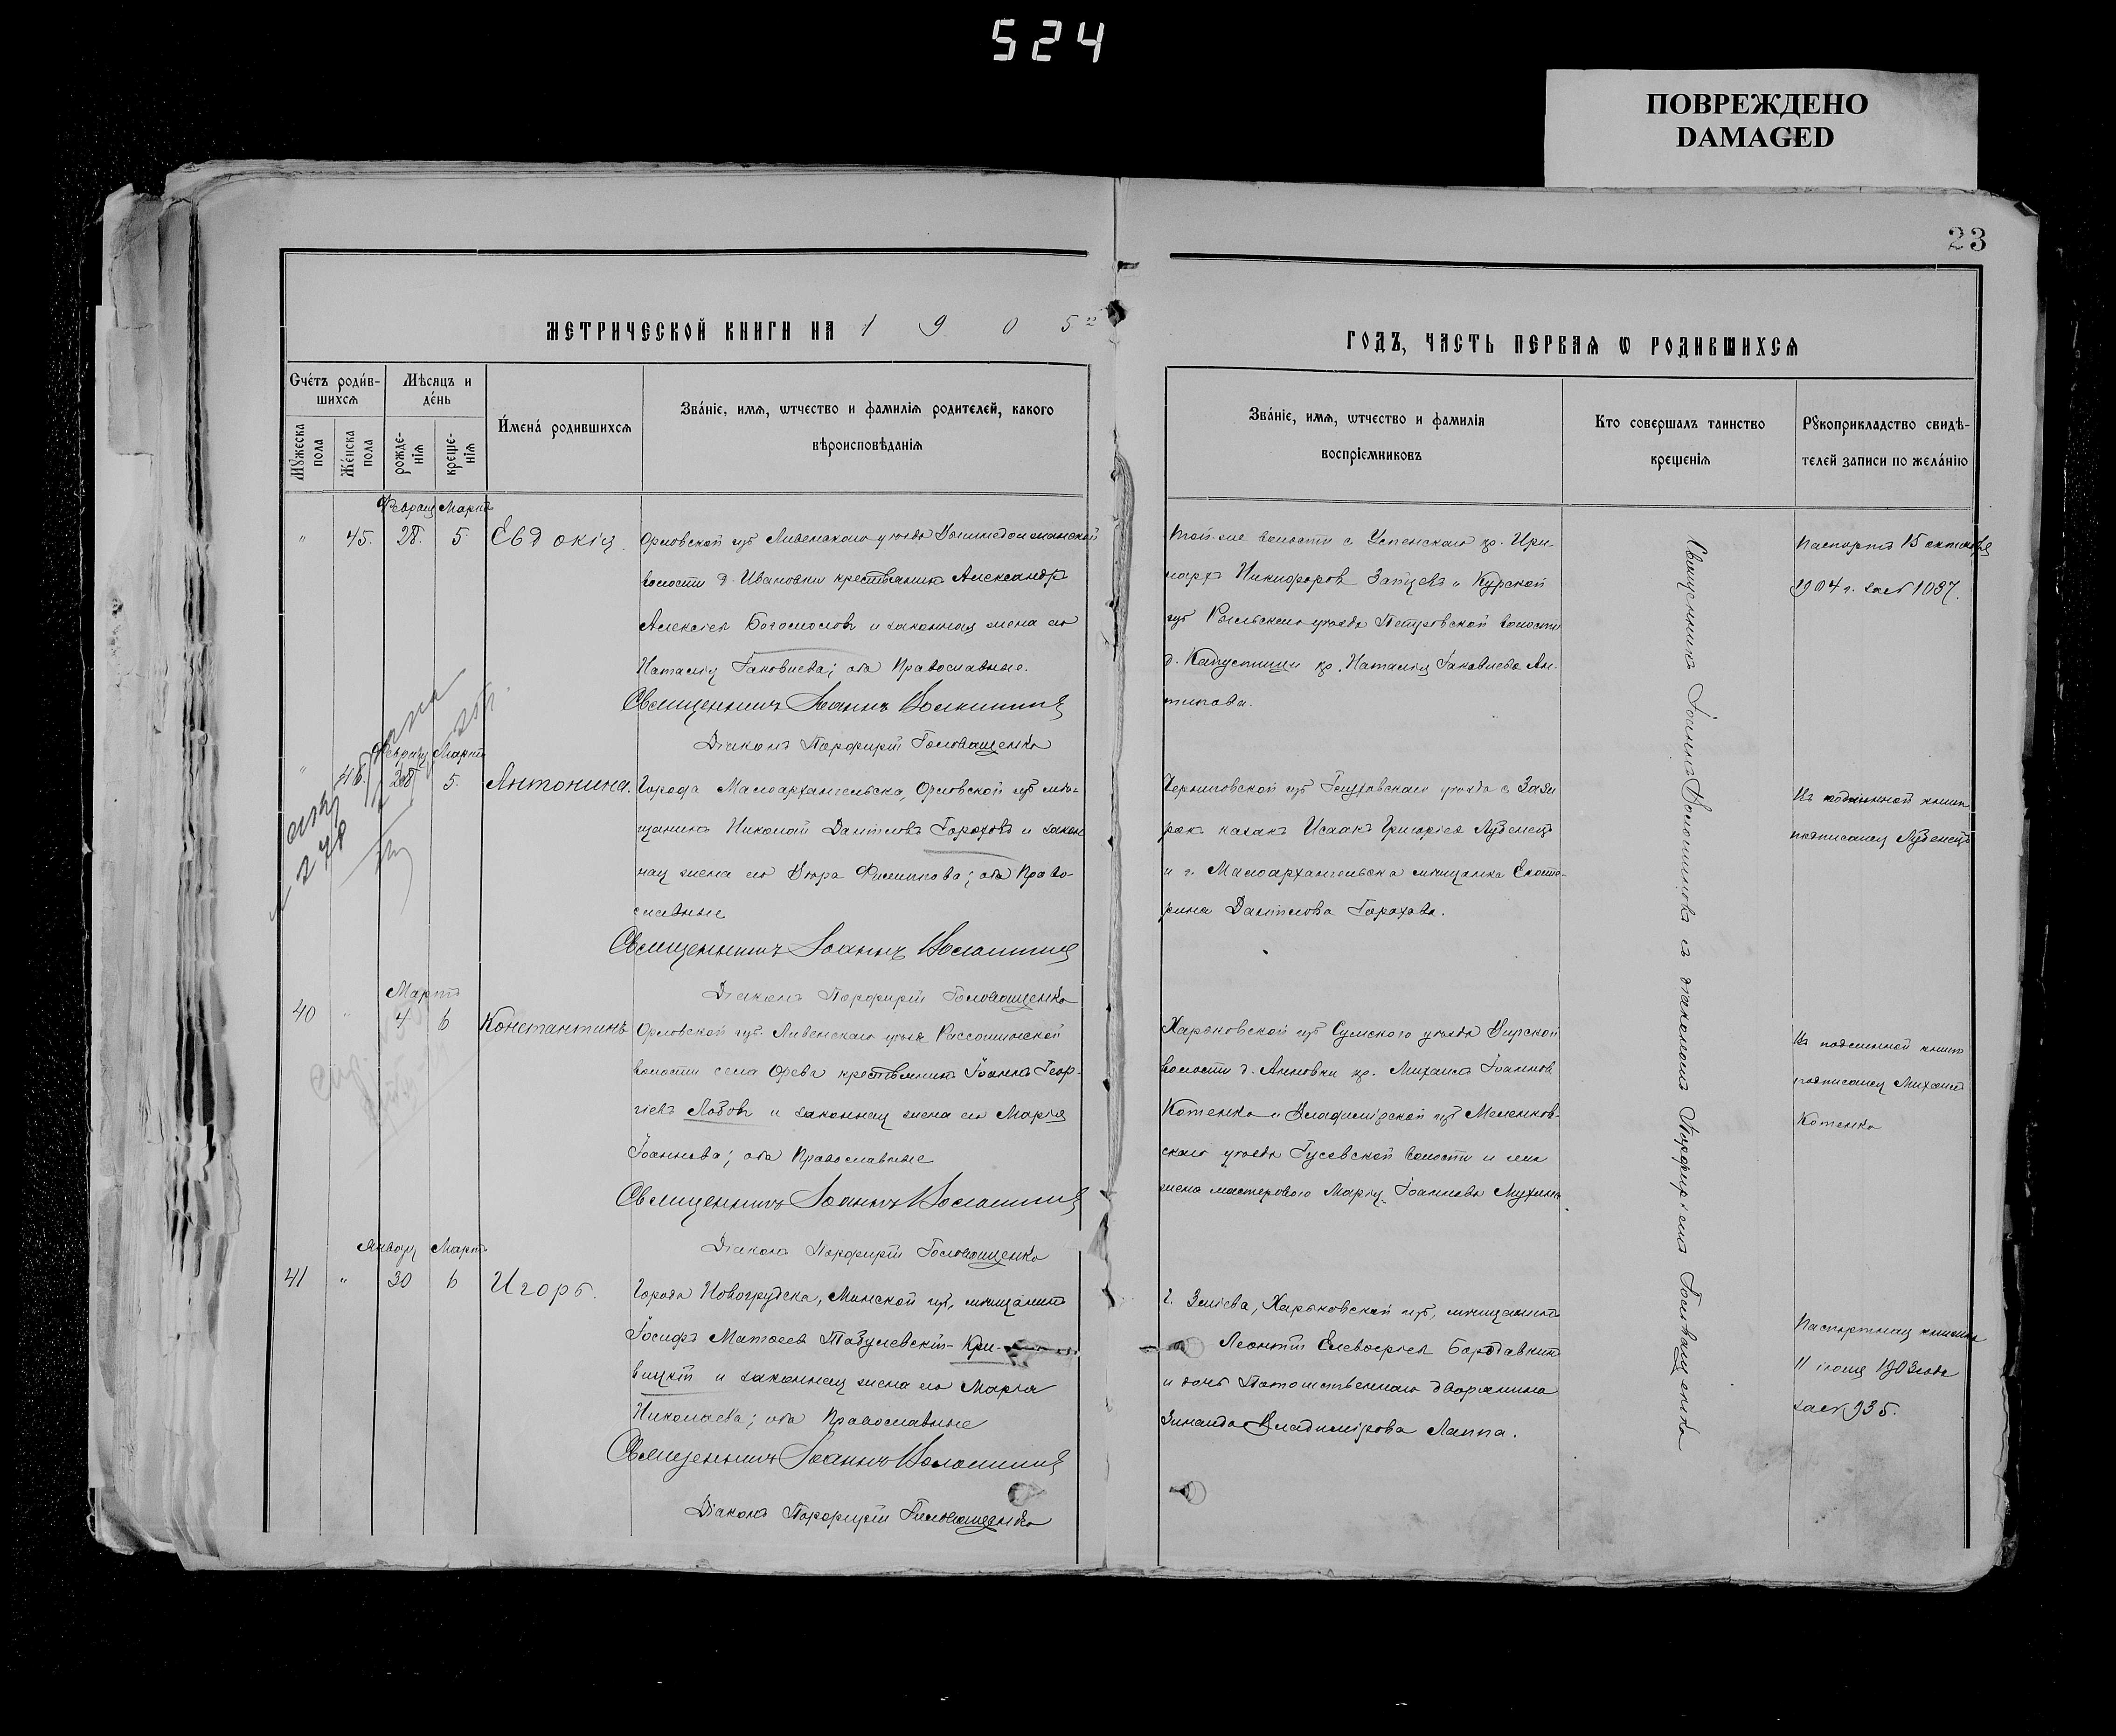 524
ПОВРЕЖДЕНО
DAMAGED
23
МЕТРИЧЕСКОЙ КНИГИ НА 1905й
ГОДЪ, ЧАСТЬ ПЕРВАЯ Ѡ РОДИВШИХСЯ
Счéтъ роди́в-
шихся
Мꙋжеска пола
Жéнска пола
Мѣсяцъ и
дéнь
рожде-
нія
креще-
нія
И́мена́ родившихся
Зва́ніе, имя, ѡтчество и фамилія родителей, какого
вѣроисповѣданія
Зва́ніе, имя, ѡтчество и фамилія
воспріемниковъ
Кто совершалъ таинство
крещенія
Рꙋкоприкладство свидѣ-
телей записи по жела́нію
Февраля Марта
" 45. 28. 5. Евдокія.
Орловской губ Ливенскаго уѣзда
волости д. Ивановки крестьянинъ Александръ
Алексѣевъ Богомоловъ и законная жена его
Наталія Іаковлева; оба Православные.
Священникъ Іоаннъ Волошинъ
Діаконъ Порфирій Головащенко
Той-же волости с. Успенскаго кр. Ири-
нархъ Никифоровъ Зайцевъ и Курской
губ Рыльскаго уѣзда Петровской волости
д. Капустиши кр. Наталія Іаковлева Ан-
типова.
Паспортъ 15 октября
1904 г. за № 1087.
Февраля Марта
" 46. 28 5. Антонина.
Города Малоархангельска, Орловской губ мѣ-
щанинъ Николай Даніиловъ Гороховъ и закон
ная жена его Філиппова; оба Право-
славные
Священникъ Іоаннъ Волошинъ
Діаконъ Порфирій Головащенко
Черниговской губ Глуховскаго уѣзда с.
казакъ Исаакъ Григорьевъ Лубенецъ
и г. Малоархангельска мѣщанка Екате-
рина Даніилова Горохова.
Въ подлинной книгѣ
подписался Лубенецъ
278
Мартъ
40 " 4 6 Константинъ
Орловской губ. Ливенскаго уѣзда Россошинской
волости села Орева крестьянинъ Іоаннъ Геор-
гіевъ Лобовъ и законная жена его Марія
Іоаннова; оба Православные
Священникъ Іоаннъ Волошинъ
Діаконъ Порфирій Головащенко
Харьковской губ Сумского уѣзда Вирской
волости д. Анновки кр. Михаилъ Іоанновъ
Котенко и Владимірской губ Меленков-
скаго уѣзда Гусевской волости и села
жена мастерового Марія Іоаннова Мухина.
Въ подлинной книгѣ
подписался Михаилъ
Котенко
Января Марта
41 " 30 6 Игорь.
Города Новогрудска, Минской губ, мѣщанинъ
Іосифъ Матвеевъ Табулевскій-Кри-
вицкій и законная жена его Марія
Николаева; оба Православные
Священникъ Іоаннъ Волошинъ
Діаконъ Порфирій Головащенко
г. Зміева, Харьковской губ, мѣщанинъ
Леонтій Елевѳеріевъ Бородавкинъ
и дочь Потомственнаго дворянина
Зинаида Владимірова Лаппа.
Паспортная книжка
11 іюня 1903 года
за № 935.
Священникъ Іоаннъ Волошиновъ съ діакономъ Порфиріемъ Головащенко